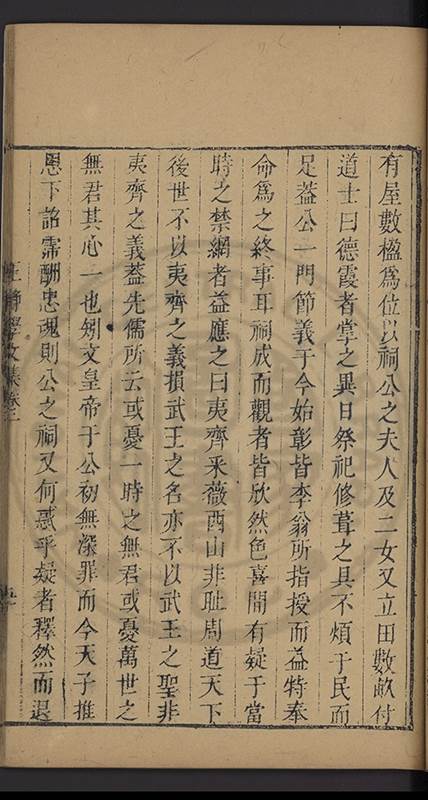 有屋數楹為位以祠公之夫人及二女又立田數畝付
道士曰德霞者掌之異日祭祀修葺之具不煩于民而
足葢公一門節義于今始彰皆李翁所指授而益特奉
命為之終事耳祠成而觀者皆欣然色喜間有疑于當
時之禁網者益應之曰夷齊采薇西山非耻周道天下
後世不以夷齊之義損武王之名亦不以武王之聖非
夷齊之義葢先儒所云或憂一時之無君或憂萬世之
無君其心一也矧文皇帝于公初無深罪而今天子推
恩下詔霈酬忠魂則公之祠又何惑乎疑者釋然而退
王靜學文集卷二